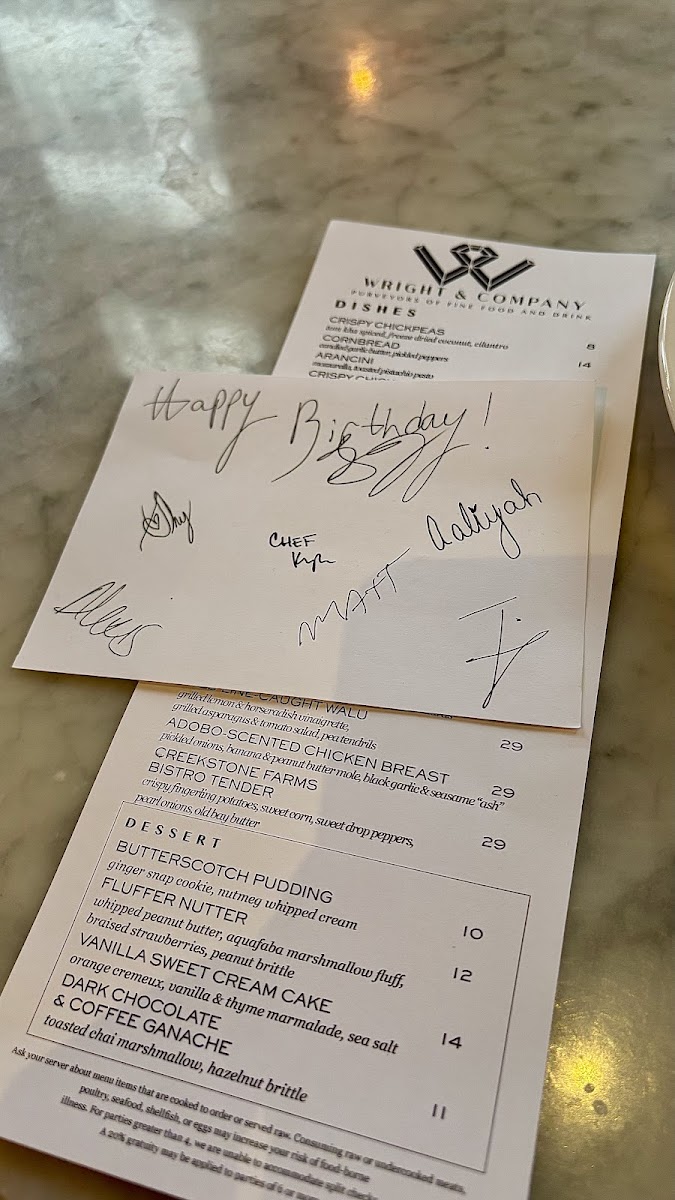 WRIGHT & COMPANY
PURVEYORS OF FINE FOOD AND DRINK
DISHES
CRISPY CHICKPEAS
tom kha spiced, freeze dried coconut, cilantro 8
CORNBREAD
candied garlic butter, pickled peppers 14
ARANCINI
mozzarella, toasted pistachio pesto
Happy Birthday!
CHEF
Kyle
Aaliyah
MATT
Alexis
LINE-CAUGHT WALU
grilled lemon & horseradish vinaigrette,
grilled asparagus & tomato salad, pea tendrils 29
ADOBO-SCENTED CHICKEN BREAST
pickled onions, banana & peanut butter mole, black garlic & seasame "ash" 29
CREEKSTONE FARMS
BISTRO TENDER
crispy fingerling potatoes, sweet corn, sweet drop peppers,
pearl onions, old bay butter 29
DESSERT
BUTTERSCOTCH PUDDING
ginger snap cookie, nutmeg whipped cream 10
FLUFFER NUTTER
whipped peanut butter, aquafaba marshmallow fluff,
braised strawberries, peanut brittle 12
VANILLA SWEET CREAM CAKE
orange cremeux, vanilla & thyme marmalade, sea salt 14
DARK CHOCOLATE
& COFFEE GANACHE
toasted chai marshmallow, hazelnut brittle 11
Ask your server about menu items that are cooked to order or served raw. Consuming raw or undercooked meats,
poultry, seafood, shellfish, or eggs may increase your risk of food-borne
illness. For parties greater than 4, we are unable to accommodate split checks
A 20% gratuity may be applied to parties of 6 or more